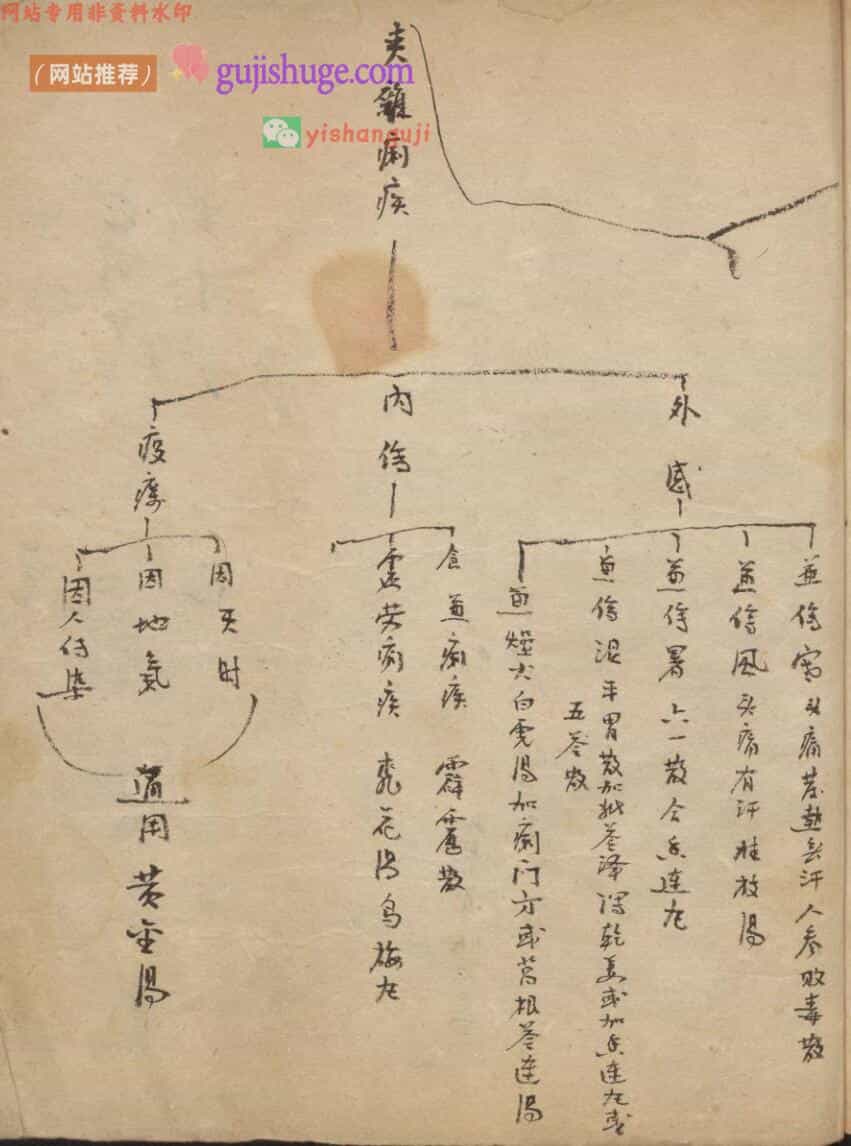 网站专用非资料水印
（网站推荐） gujishuge.com
yishanguji
夹雜痢疾
外感
兼傷寒头痛发熱無汗人參败毒散
兼傷風头痛有汗桂枝湯
兼傷暑六一散合香連丸
兼傷湿平胃散加
乾姜或加香連丸或
五苓散
兼燥火白虎湯加痢门方或葛根芩連湯
内傷
食兼痢疾 霹靂散
虚劳痢疾 桃花湯烏梅丸
疫癘
因天时
因地氣
因人传染
通用黄金湯